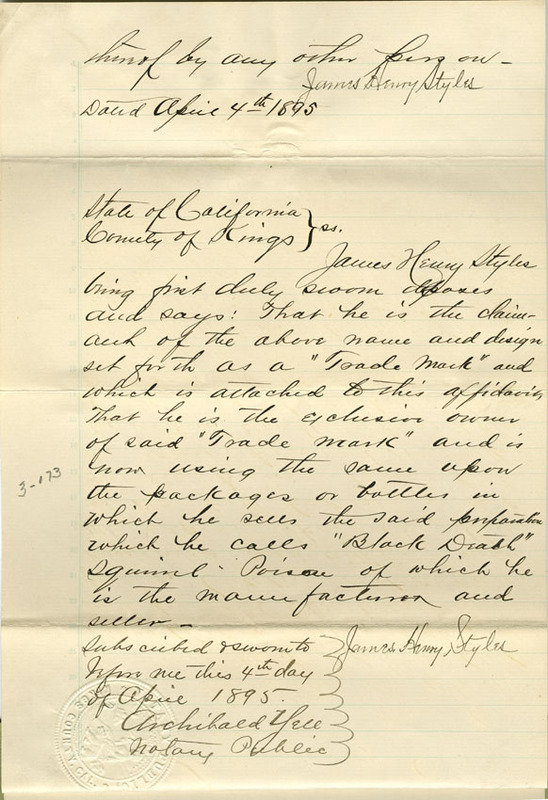 thereof by any other person —
James Henry Styles
Dated April 4th 1895
State of California } ss.
County of Kings
James Henry Styles
being first duly sworn deposes
and says: That he is the claim-
ant of the above name and design
set forth as a "Trade Mark" and
which is attached to this affidavit
That he is the exclusive owner
of said "Trade mark" and is
now using the same upon
the packages or bottles in
which he sells the said preparation
which he calls "Black Death"
Squirrel - Poison of which he
is the manufacturer and
seller —
Subscribed & sworn to
before me this 4th day
of April 1895.
Archibald Yell
Notary Public
James Henry Styles
3-173